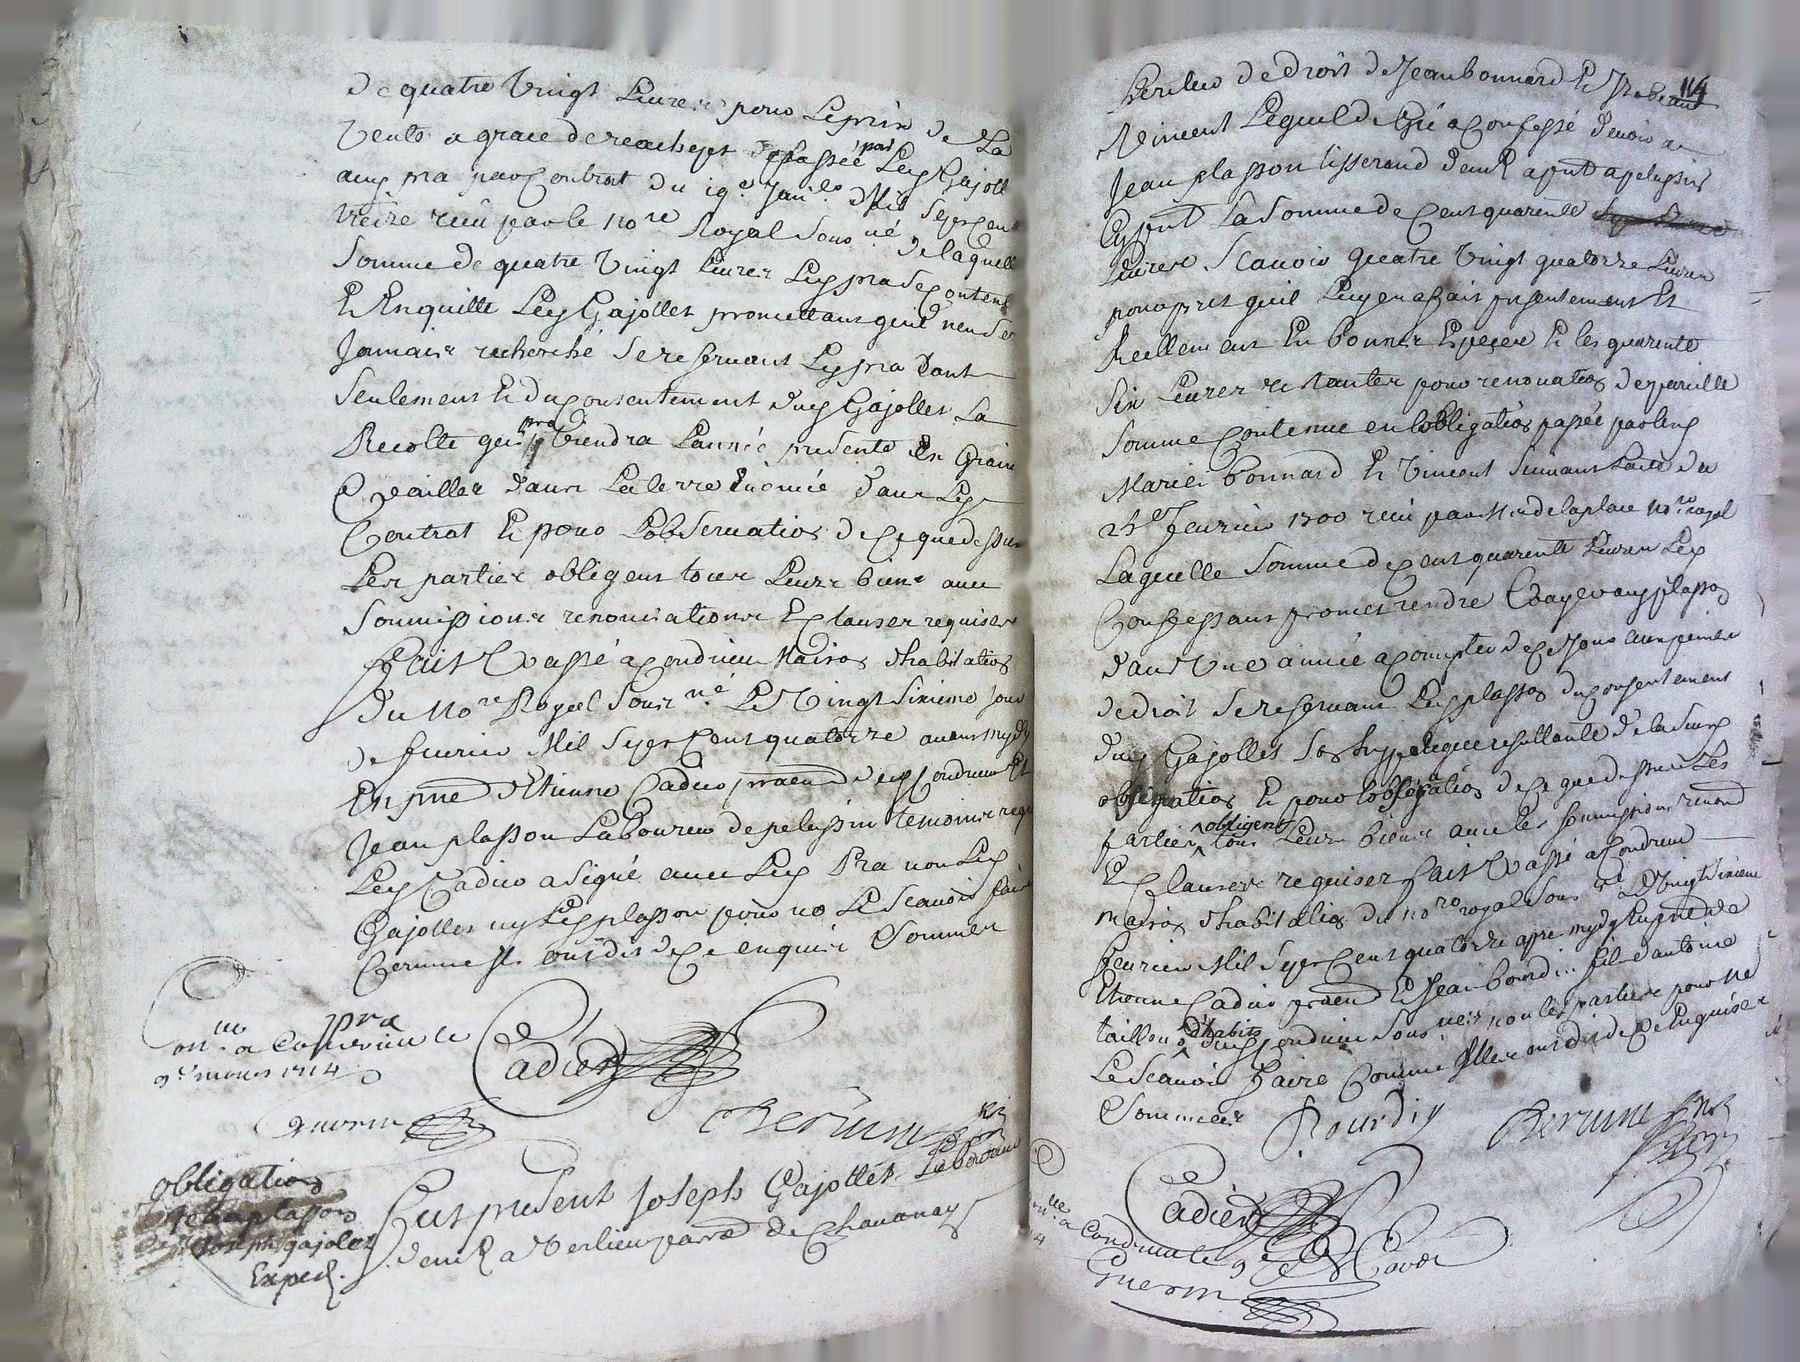 de quatre Vingt Livres pour Le prix de La
Vente a grace de reachept passée par Ley Gajoll
auy pra par Contrat du 19e Janr. Mil Sept Cent
treize reçu par le nore Royal Sousné de laquelle
Somme de quatre Vingt Livres Ley pra Se Contente
Et En quitte Ley Gajollet promettant quil n'en Ser
Jamais recherché Se reservant Ley pra dont
Seulement Et du Consentement duy Gajollet La
Recolte qui proviendra L'année presente En Grain
Et pailles dans La terre Enoncée dans Ley
Contrat Et pour L'observation de Ce que dessus
Les parties obligent tous Leurs biens avec
Soumissions renonciations Et Clauses requises
fait Et passé a Condrieu Maison d'habitation
du Nore Royal Sousné Le Vingt Sixieme Jour
de fevrier Mil Sept Cent quatorze avant mydy
En pnce d'Etienne Cadier praticn duy Condrieu Et
Jean plasson Laboureur de pelussin temoins requi
Ley Cadier a Signé avec Ley Pra non Ley
Gajollet ny Ley plasson pour ne Le Scavoir fair
Comme Ils ont dit de Ce enquis Et Sommes
pra
Cadier
a Condrieu le
9e mars 1714
Guerin
obligation
Jean plasson
Joseph gajolet
Exped.
fut present Joseph Gajollet Laboureur
demt a Verlieu parre de Chavanay
114
heritier de droit de Jean bonnard Et
Vincent Lequel de Gré a Confessé devoir a
Jean plasson tisserand demt a pelussin
Cy pnt La Somme de Cent quarente
Livres Scavoir quatre Vingt quatorze Livres
pour prest quil Luy en a fait presentement Et
Reellement En bonnes Especes Et les quarente
Six Livres restantes pour renovation de pareille
Somme Contenue en l'obligation passée par les
Mariés bonnard Et Vincent Suivant L'acte du
fevrier 1700 reçu par Me delaplace nore royal
Laquelle Somme de Cent quarente Livres Ley
Confessant promet rendre Et payer auy plasson
dans Une année a Compter de Ce Jour aux peines
de droit Se reservant Ley plasson du Consentement
duy Gajollet Son hypoteque resultante de la Susd
obligation Et pour l'observation de Ce que dessus Les
parties obligent tous Leurs biens avec les Soumissions renond
Et Clauses requises fait Et passé a Condrieu
maison d'habitation du nore royal Sousné Le Vingt Sixieme
fevrier Mil Sept Cent quatorze apre mydy En pnce de
Etienne Cadier praticn Et Jean bourdi fils d'antoine
tailleur d'habits duy Condrieu Sousnés non les parties pour ne
Le Scavoir faire Comme Elles ont dit de Ce Enquises
Et Sommées
Bourdiy
Cadier
a Condrieu le 9e
Guerin